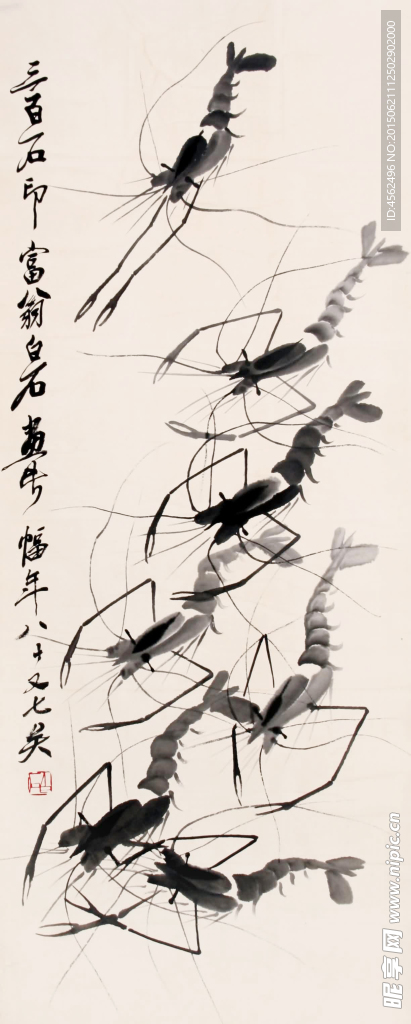 三百石印富翁白石画此幅年八十又七矣
ID:4562496 NO:20150621112502902000
昵享网 www.nipic.cn